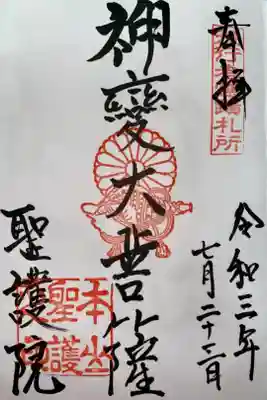 奉拝
令和三年
七月二十三日
神變大菩薩
聖護院
本山
聖護